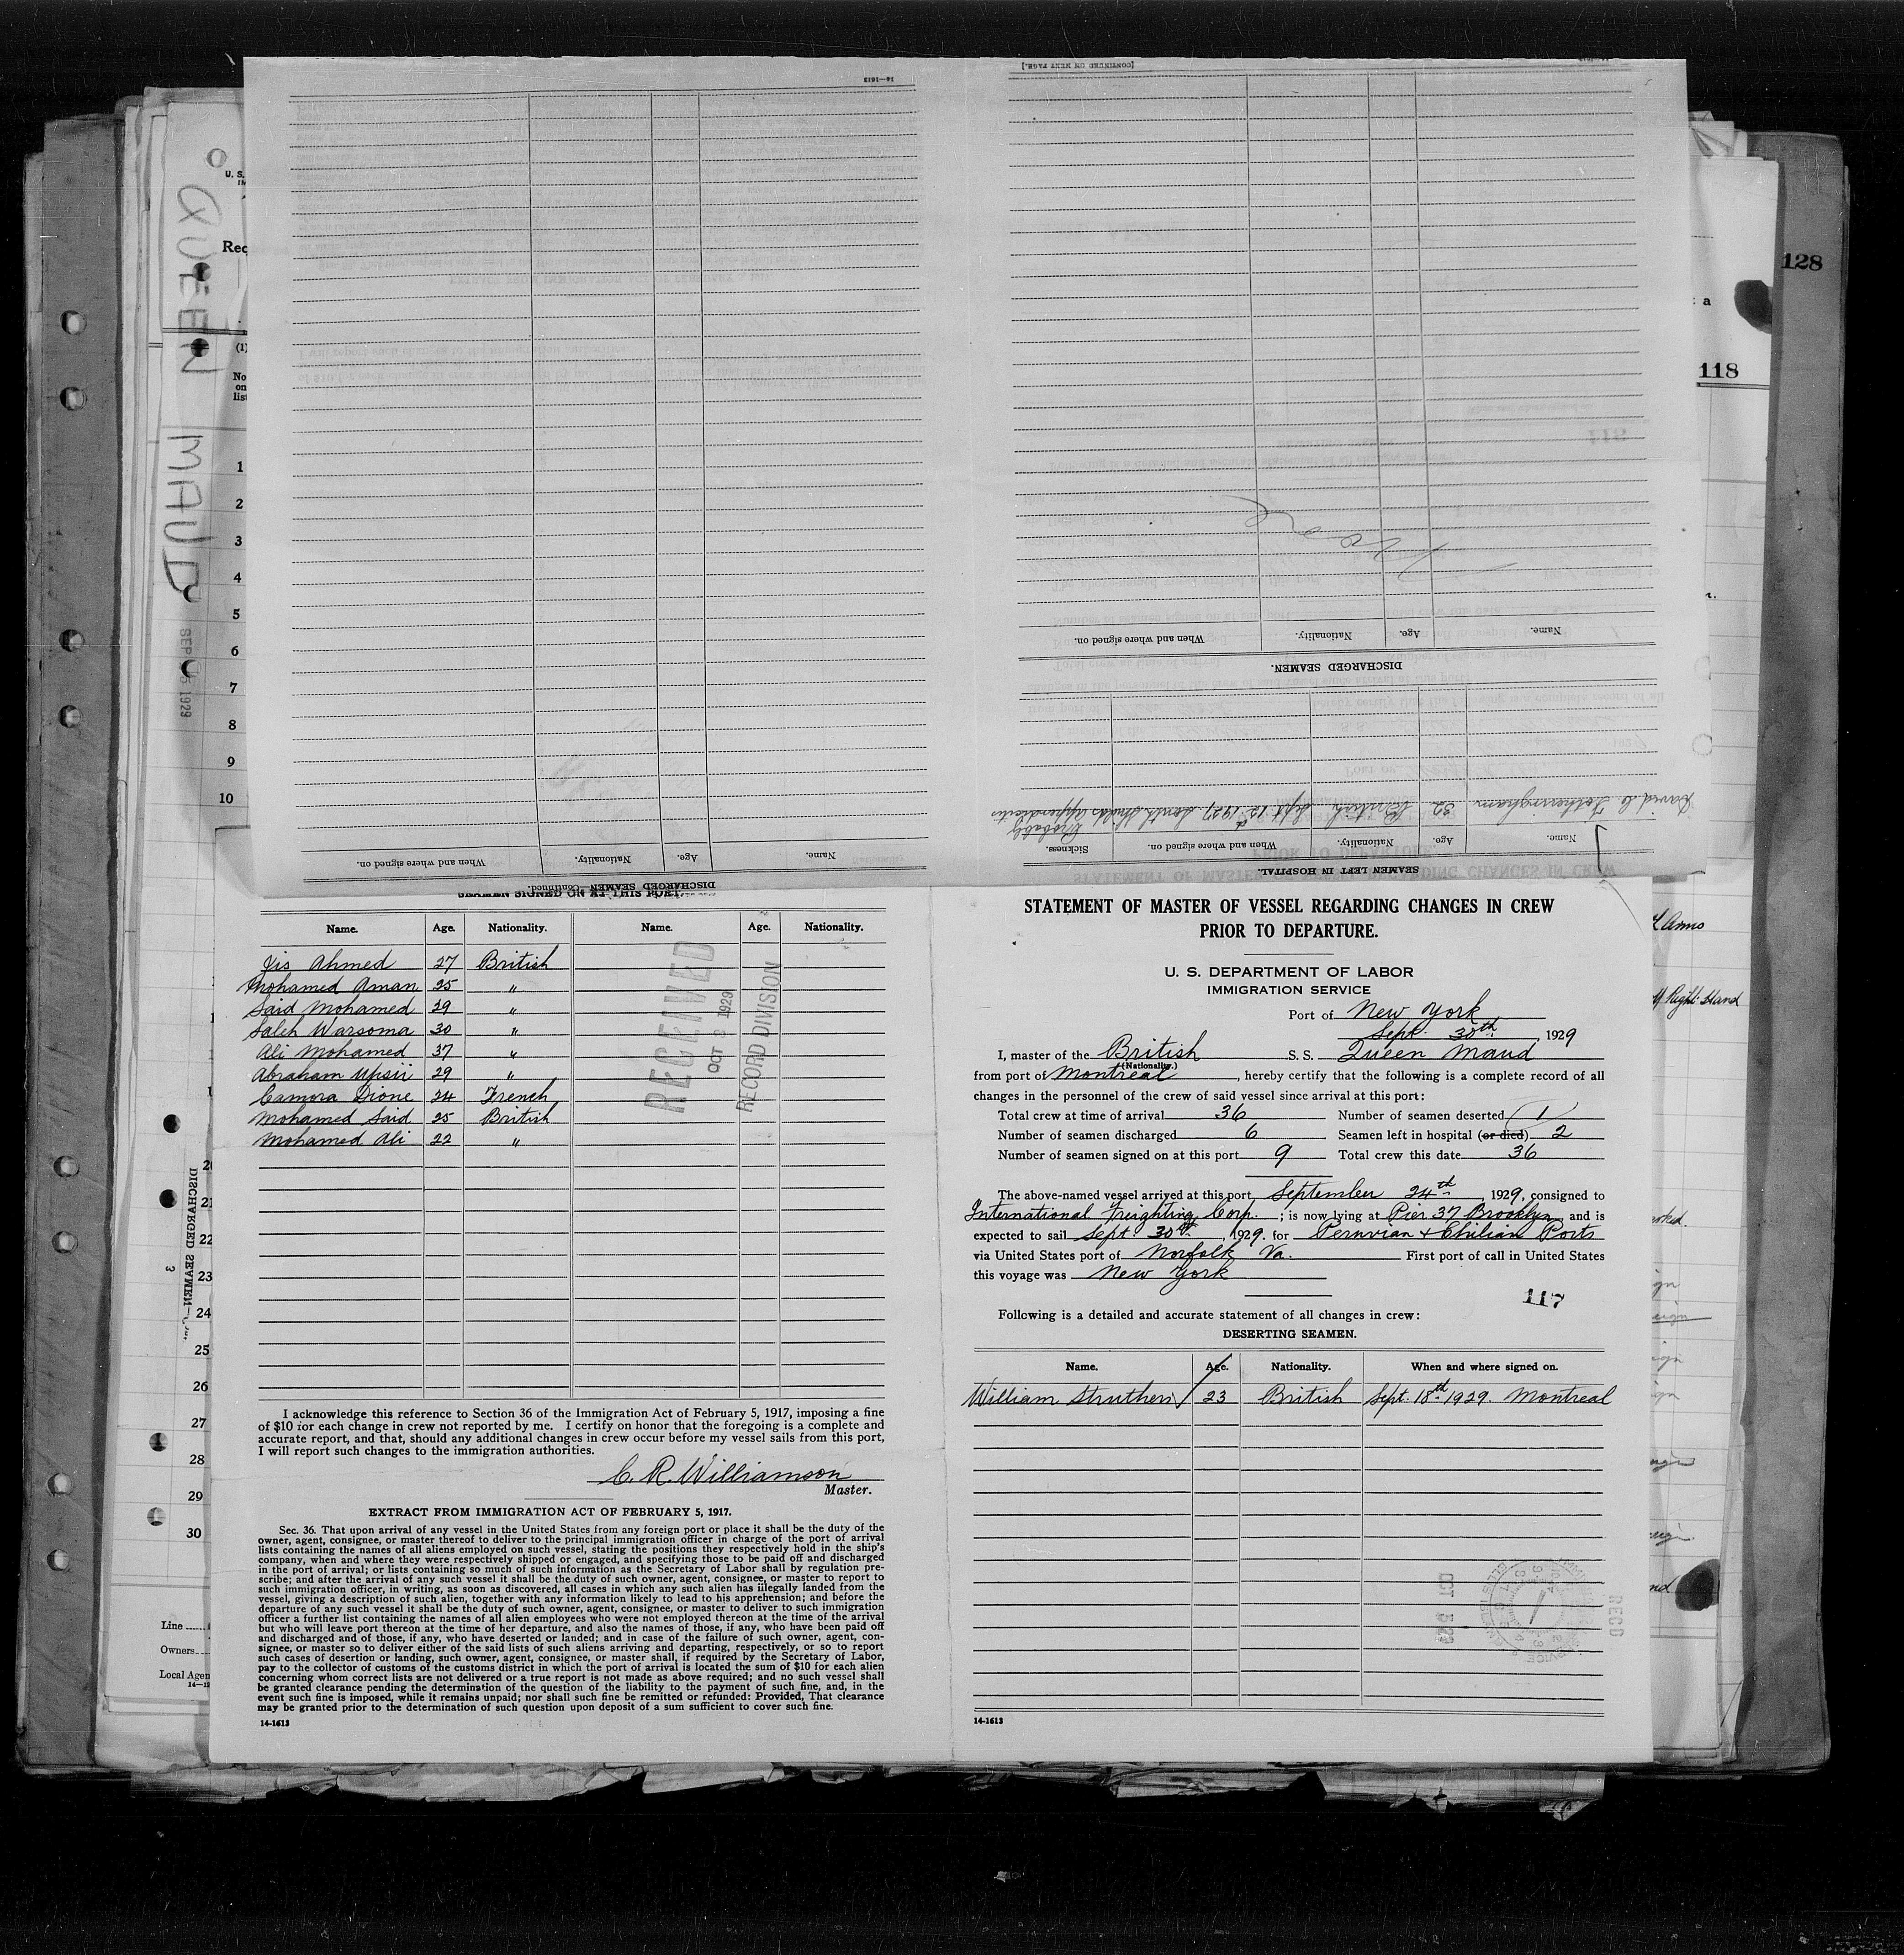 14—1613
[CONTINUED ON NEXT PAGE.]
U. S.
QUEEN
MAUD
SEP 25 1929
128
118
Name. Age. Nationality. When and where signed on.
DISCHARGED SEAMEN—Continued.
DISCHARGED SEAMEN.
Name. Age. Nationality. When and where signed on.
SEAMEN LEFT IN HOSPITAL.
Name. Age. Nationality. When and where signed on. Sickness.
David C Fotheringham 32 British Sept 12th 1929, South Shields Probably appendicitis
1
2
3
4
5
6
7
8
9
10
SEAMEN SIGNED ON AT THIS PORT.
Name. Age. Nationality. Name. Age. Nationality.
Jis Ahmed 27 British
Mohamed Aman 25 "
Said Mohamed 29 "
Saleh Warsoma 30 "
Ali Mohamed 37 "
Abraham Upsir 29 "
Camora Dione 24 French
Mohamed Said 25 British
Mohamed Ali 22 "
RECEIVED
OCT 3 1929
RECORD DIVISION
I acknowledge this reference to Section 36 of the Immigration Act of February 5, 1917, imposing a fine
of $10 for each change in crew not reported by me. I certify on honor that the foregoing is a complete and
accurate report, and that, should any additional changes in crew occur before my vessel sails from this port,
I will report such changes to the immigration authorities.
C. R. Williamson
Master.
EXTRACT FROM IMMIGRATION ACT OF FEBRUARY 5, 1917.
Sec. 36. That upon arrival of any vessel in the United States from any foreign port or place it shall be the duty of the
owner, agent, consignee, or master thereof to deliver to the principal immigration officer in charge of the port of arrival
lists containing the names of all aliens employed on such vessel, stating the positions they respectively hold in the ship's
company, when and where they were respectively shipped or engaged, and specifying those to be paid off and discharged
in the port of arrival; or lists containing so much of such information as the Secretary of Labor shall by regulation pre-
scribe; and after the arrival of any such vessel it shall be the duty of such owner, agent, consignee, or master to report to
such immigration officer, in writing, as soon as discovered, all cases in which any such alien has illegally landed from the
vessel, giving a description of such alien, together with any information likely to lead to his apprehension; and before the
departure of any such vessel it shall be the duty of such owner, agent, consignee, or master to deliver to such immigration
officer a further list containing the names of all alien employees who were not employed thereon at the time of the arrival
but who will leave port thereon at the time of her departure, and also the names of those, if any, who have been paid off
and discharged and of those, if any, who have deserted or landed; and in case of the failure of such owner, agent, con-
signee, or master so to deliver either of the said lists of such aliens arriving and departing, respectively, or so to report
such cases of desertion or landing, such owner, agent, consignee, or master shall, if required by the Secretary of Labor,
pay to the collector of customs of the customs district in which the port of arrival is located the sum of $10 for each alien
concerning whom correct lists are not delivered or a true report is not made as above required; and no such vessel shall
be granted clearance pending the determination of the question of the liability to the payment of such fine, and, in the
event such fine is imposed, while it remains unpaid; nor shall such fine be remitted or refunded: Provided, That clearance
may be granted prior to the determination of such question upon deposit of a sum sufficient to cover such fine.
14-1613
STATEMENT OF MASTER OF VESSEL REGARDING CHANGES IN CREW
PRIOR TO DEPARTURE.
U. S. DEPARTMENT OF LABOR
IMMIGRATION SERVICE
Port of New York
Sept. 30th, 1929
I, master of the British S. S. Queen Maud
(Nationality.)
from port of Montreal, hereby certify that the following is a complete record of all
changes in the personnel of the crew of said vessel since arrival at this port:
Total crew at time of arrival 36 Number of seamen deserted 1
Number of seamen discharged 6 Seamen left in hospital (or died) 2
Number of seamen signed on at this port 9 Total crew this date 36
The above-named vessel arrived at this port, September 24th, 1929, consigned to
International Freighting Corp.; is now lying at Pier 37 Brooklyn, and is
expected to sail Sept 30th, 1929. for Peruvian + Chilian Ports
via United States port of Norfolk Va. First port of call in United States
this voyage was New York
117
Following is a detailed and accurate statement of all changes in crew:
DESERTING SEAMEN.
Name. Age. Nationality. When and where signed on.
William Struthers 23 British Sept. 18th 1929. Montreal
REC'D
14-1613
DISCHARGED SEAMEN
3
21
22
23
24
25
26
27
28
29
30
Line
Owners
Local Agen